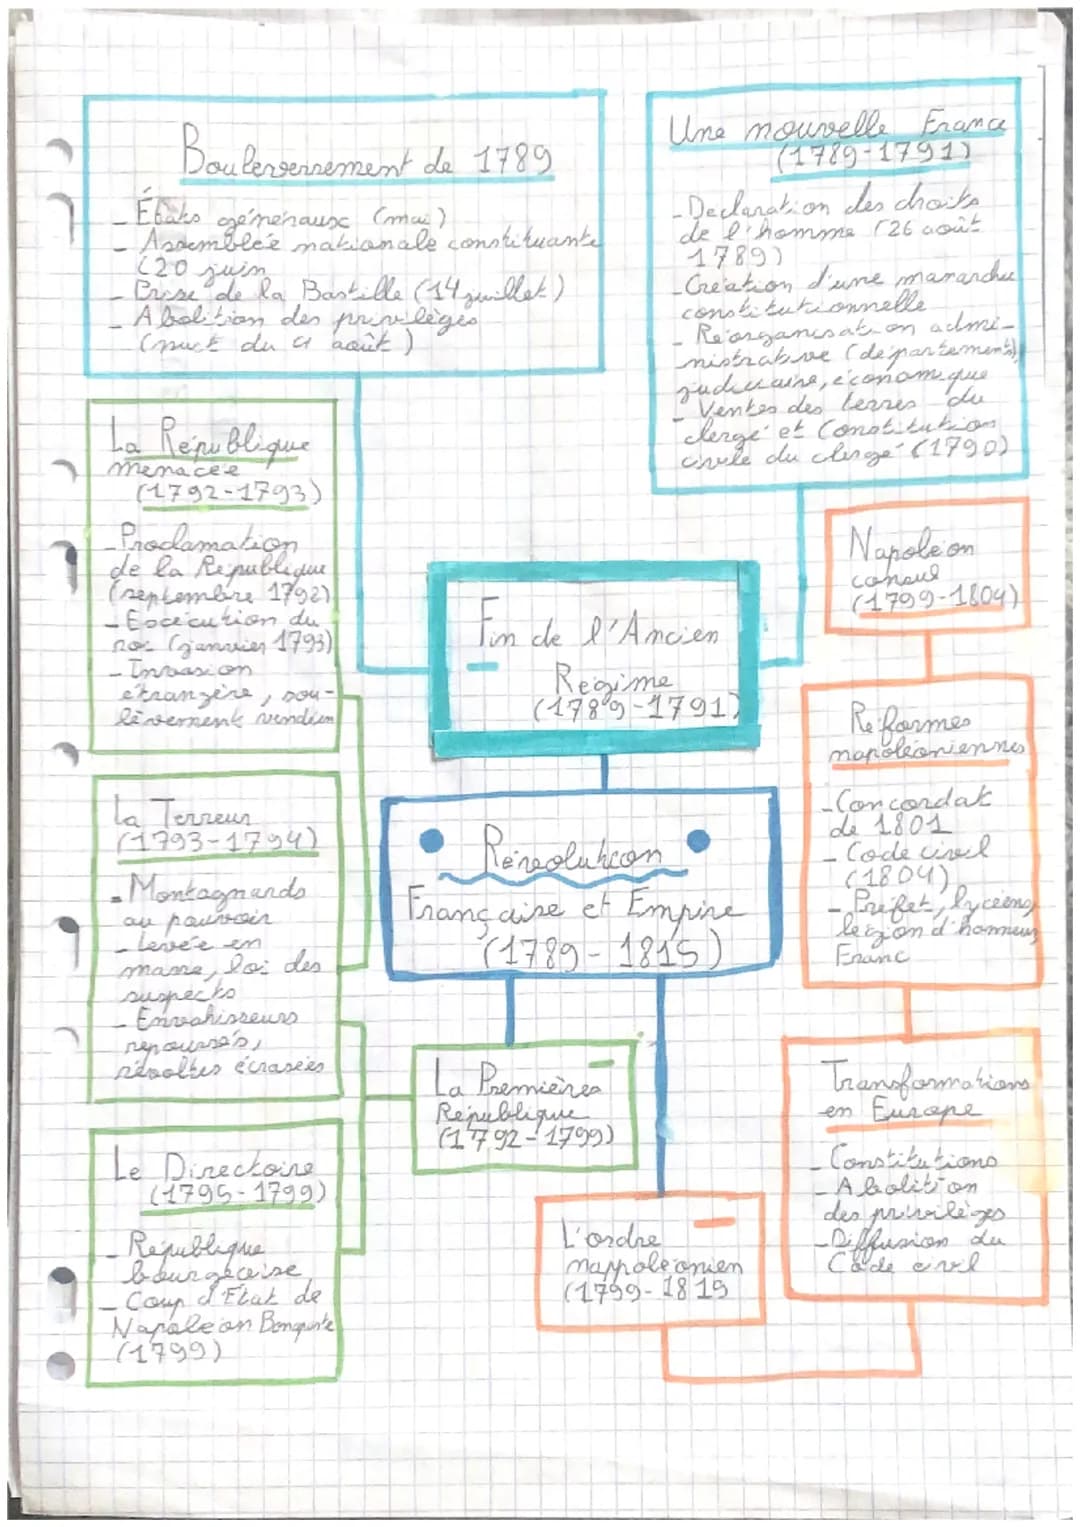 Bouleversement de 1789
- États généraux (mai)
- Assemblée nationale constituante
(20 juin
- Prise de la Bastille (14 juillet)
- Abolition des privilèges
(nuit du 4 août)
Une nouvelle France
(1789-1791)
- Declaration des droits
de l'homme (26 août
1789)
- Création d'une manarchie
constitutionnelle
- Réorganisation admi-
nistrative (départements),
judiciaire, économique
- Ventes des terres du
clergé et Constitution
civile du clergé (1790)
La République
menacée
(1792-1793)
- Proclamation
de la République
(septembre 1792)
- Exécution du
roi (janvier 1793)
- Invasion
étrangère, sou-
lèvement vendéen
Fin de l'Ancien
Régime
(1789-1791)
Napoléon
consul
(1799-1804)
Réformes
napoléoniennes
- Concordat
de 1801
- Code civil
(1804)
- Préfet, lycéens,
légion d'honneur,
Franc
La Terreur
(1793-1794)
- Montagnards
au pouvoir
- Levée en
masse, loi des
suspects
- Envahisseurs
repoussés,
révoltes écrasées
Révolution
Française et Empire
(1789-1815)
La Premières
République
(1792-1799)
Transformations
en Europe
- Constitutions
- Abolition
des privilèges
- Diffusion du
Code civil
Le Directoire
(1795-1799)
- République
bourgeoise
- Coup d'État de
Napoléon Bonaparte
(1799)
L'ordre
nappoléonien
(1799-1815